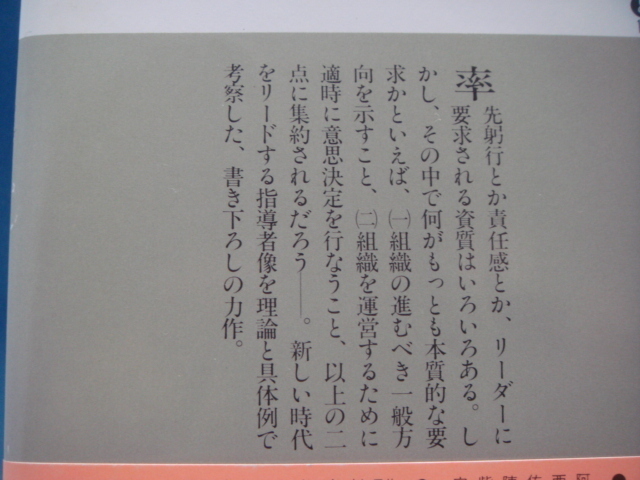 率先躬行とか責任感とか、リーダーに
要求される資質はいろいろある。し
かし、その中で何がもっとも本質的な要
求かといえば、㈠組織の進むべき一般方
向を示すこと、㈡組織を運営するために
適時に意思決定を行なうこと、以上の二
点に集約されるだろう――。新しい時代
をリードする指導者像を理論と具体例で
考察した、書き下ろしの力作。